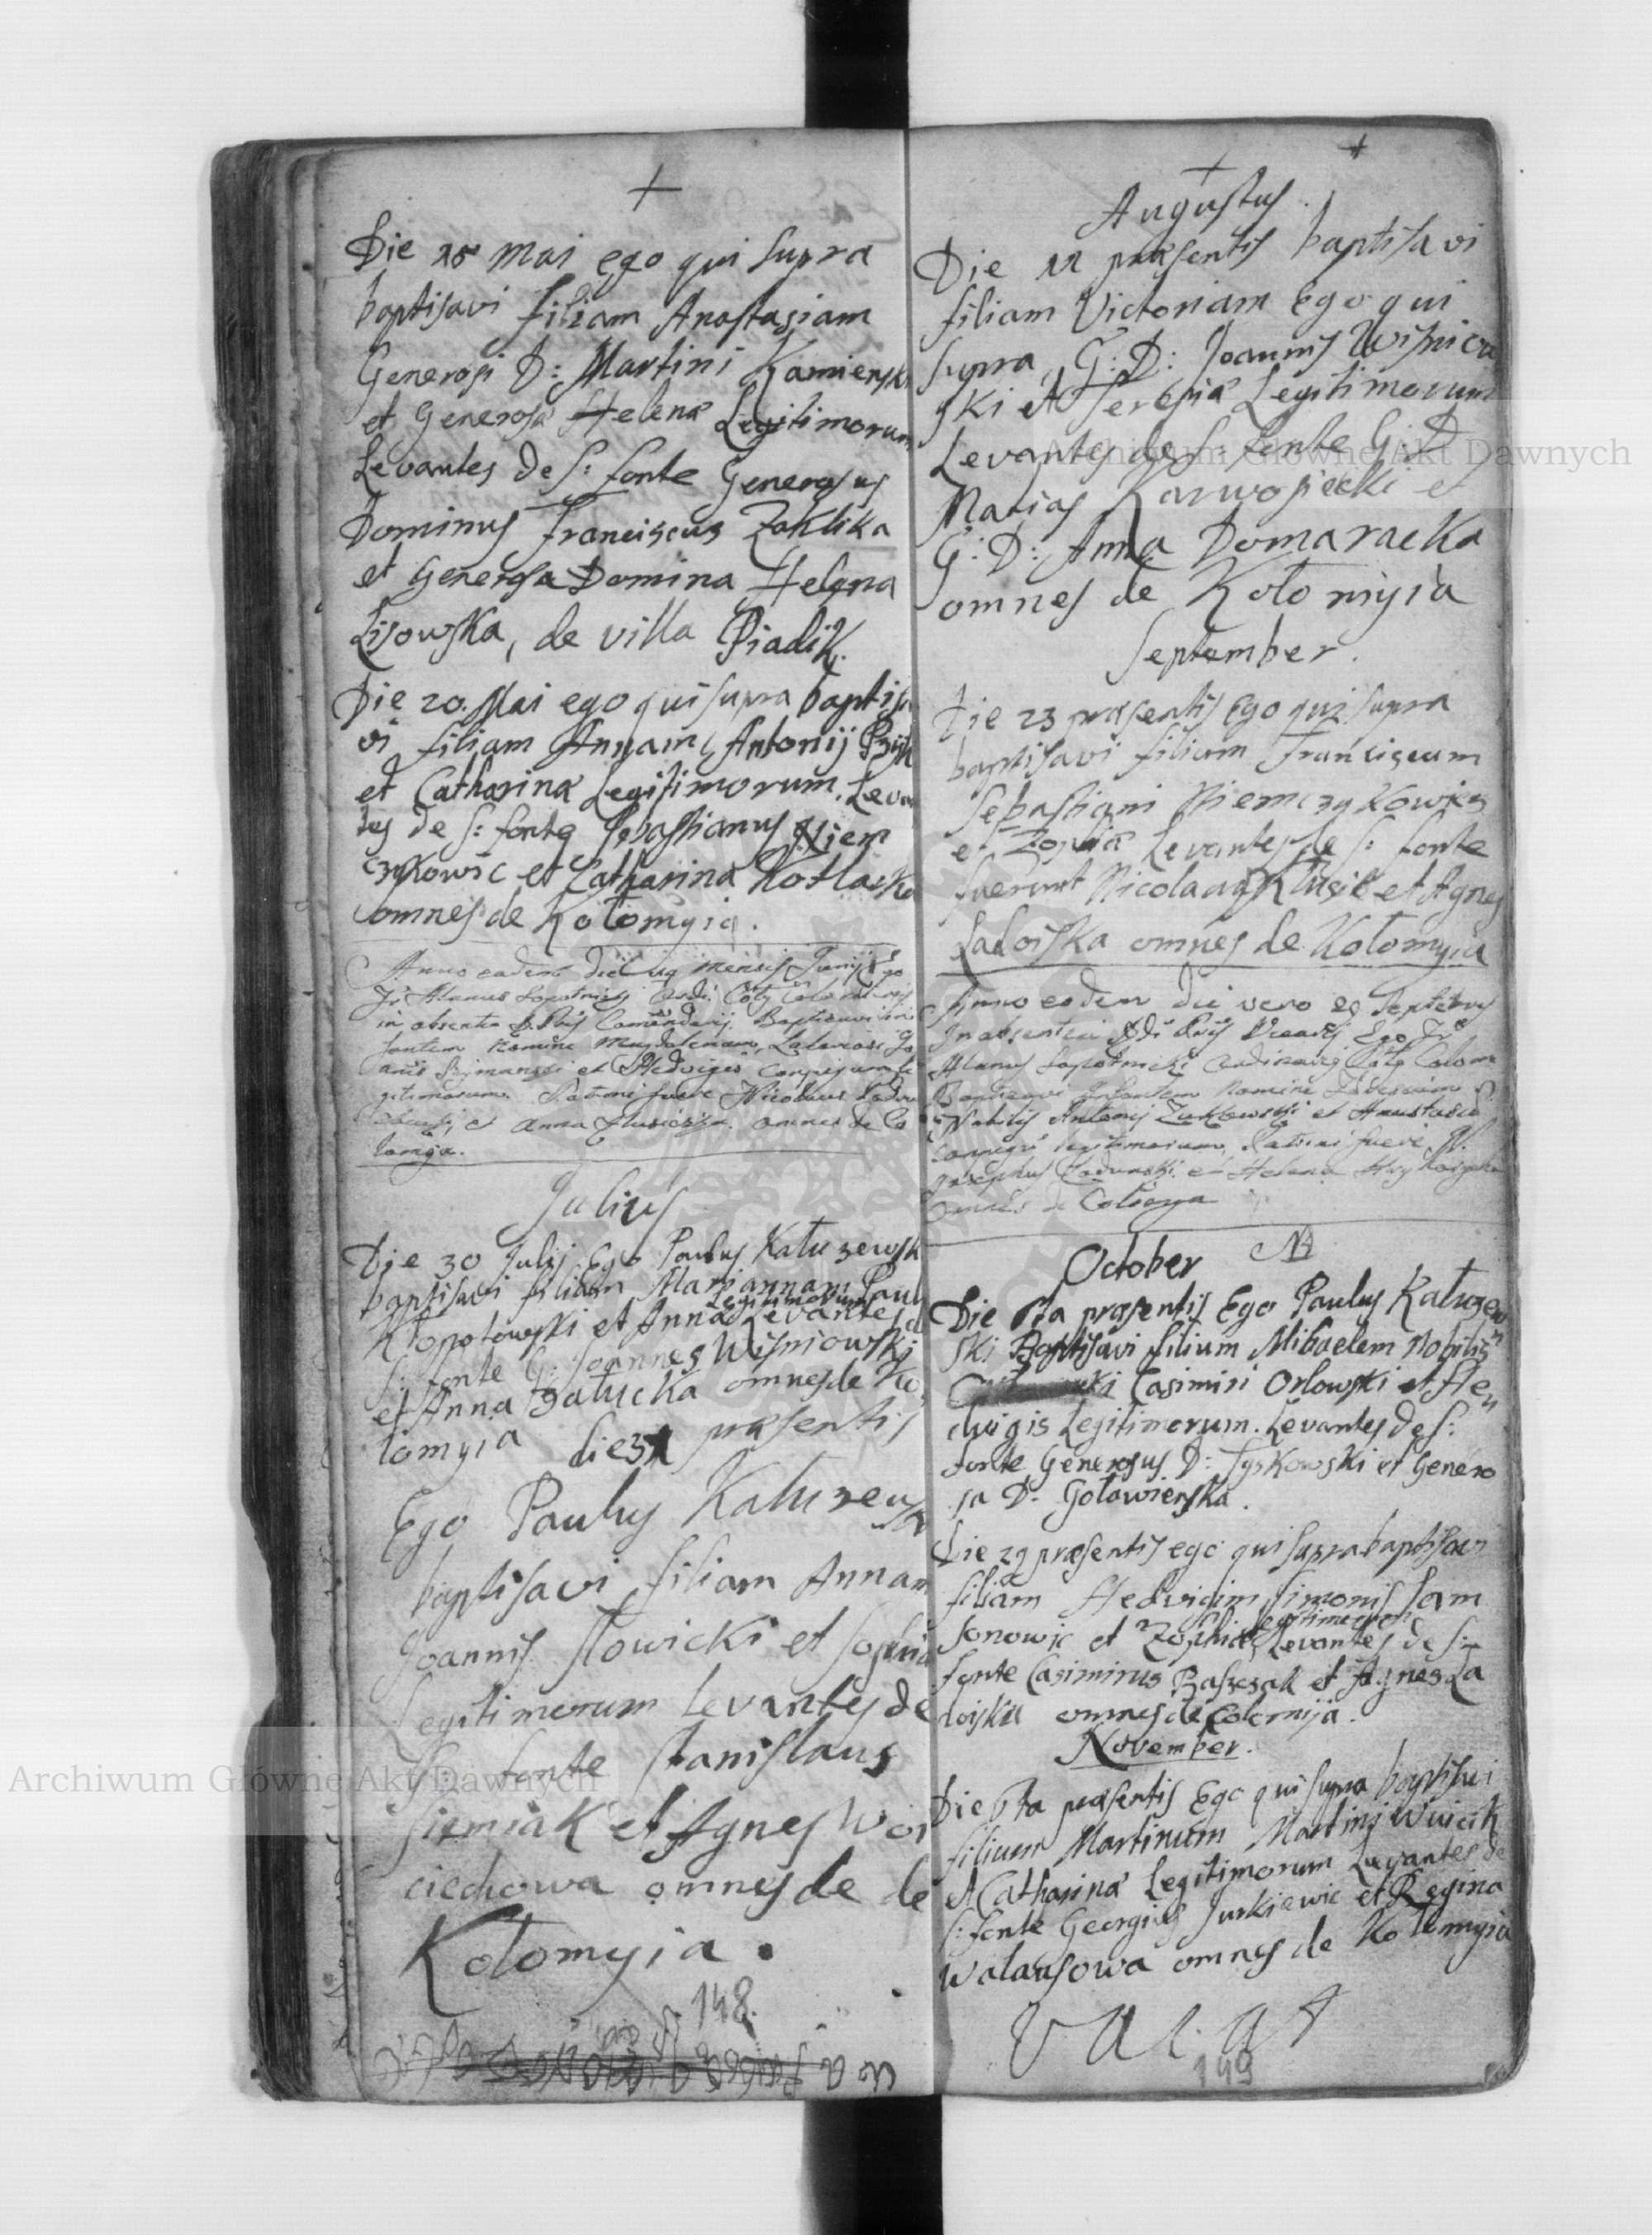 +
Die 18 Mai ego qui supra
baptisavi filiam Anastasiam
Generosi D: Martini Kamiensk
et Generosa Helena Legitimorum
Levantes de S: fonte Generosus
Dominus Franciscus Zaklika
et Generosa Domina Helena
Lisowska, de villa Piadik.
Die 20. Mai ego qui supra baptisa
vi filiam Annam Antonij
et Catharina Legitimorum. Levan
tes de S: fonte Sebastianus Niem
czykowic et Catharina Kotlarska
omnes de Kołomyia.
Anno eodem die mensis Junij Ego
Fr Alanus Lopotnicki Ordi:
in absentia Comendarij. Baptisavi in
fantem nomine Magdalenam, Jo
anis Szymanski et Hedvigis Conjugum le
gitimorum. Patrini fuere Nicolaus
et Anna omnes de Co
lomya.
Julius
Die 30 Julij Ego Paulus Kałuzewsk
baptisavi filiam Mariannam Pauli
Legitimorum
Kłopotowski et Anna Levantes d
S: fonte G: Joannes Wisniowski
et Anna Załucka omnes de Ko
lomyia die 31 præsentis
Ego Paulus Kałuzewsk
baptisavi filiam Annam
Joannis Słowicki et Sophia
Legitimorum Levantes de
S: fonte Stanislaus
Siemiak et Agnes Woi
ciechowa omnes de de
Kołomyia.
148.
+
+
Augustus.
Die 11 præsentis baptisavi
filiam Victoriam Ego qui
supra G: D: Joannis Wisniow
ski et Teresia Legitimorum
Levantes de S: fonte G: D
Matias Karwosiecki et
G: D: Anna Domaracka
omnes de Kołomyia
September.
Die 23 præsentis Ego qui supra
baptisavi filium Franciscum
Sebastiani Niemczykowicz
et Zophia Levantes de S: fonte
fuerunt Nicolaus Klusic et Agnes
Ladoiska omnes de Kołomyia
Anno eodem die vero 29 Septembris
In absentia Ego Fr
Alanus Lopotnicki Ordinarij
Baptisavi Infantem nomine
Nobilis Antonij Zukowski et Anastasia
Conjugum legitimorum, Patrini fuere
Josephus et Helena
omnes de Colomya
October
Die 6ta præsentis Ego Paulus Kałuzew
ski Baptisavi filium Mihaelem Nobilis
Casimiri Orlowski et He
dwigis Legitimorum. Levantes de S:
fonte Generosus D: Tyskowski et Genero
sa D. Goławienska.
Die 29 præsentis ego qui supra baptisavi
filiam Hedvigim Simonis Sam
Legitimorum
sonowic et Zophia Levantes de S:
fonte Casimirus Baszczak et Agnes La
doiska omnes de Colomija.
November.
Die 6ta præsentis Ego qui supra baptisavi
filium Martinum Martini Wuicik
et Catharina Legitimorum Levantes de
S: fonte Georgius Jurkiewic et Regina
Walausowa omnes de Kołomyia
Vacat
149
Archiwum Główne Akt Dawnych
Archiwum Główne Akt Dawnych